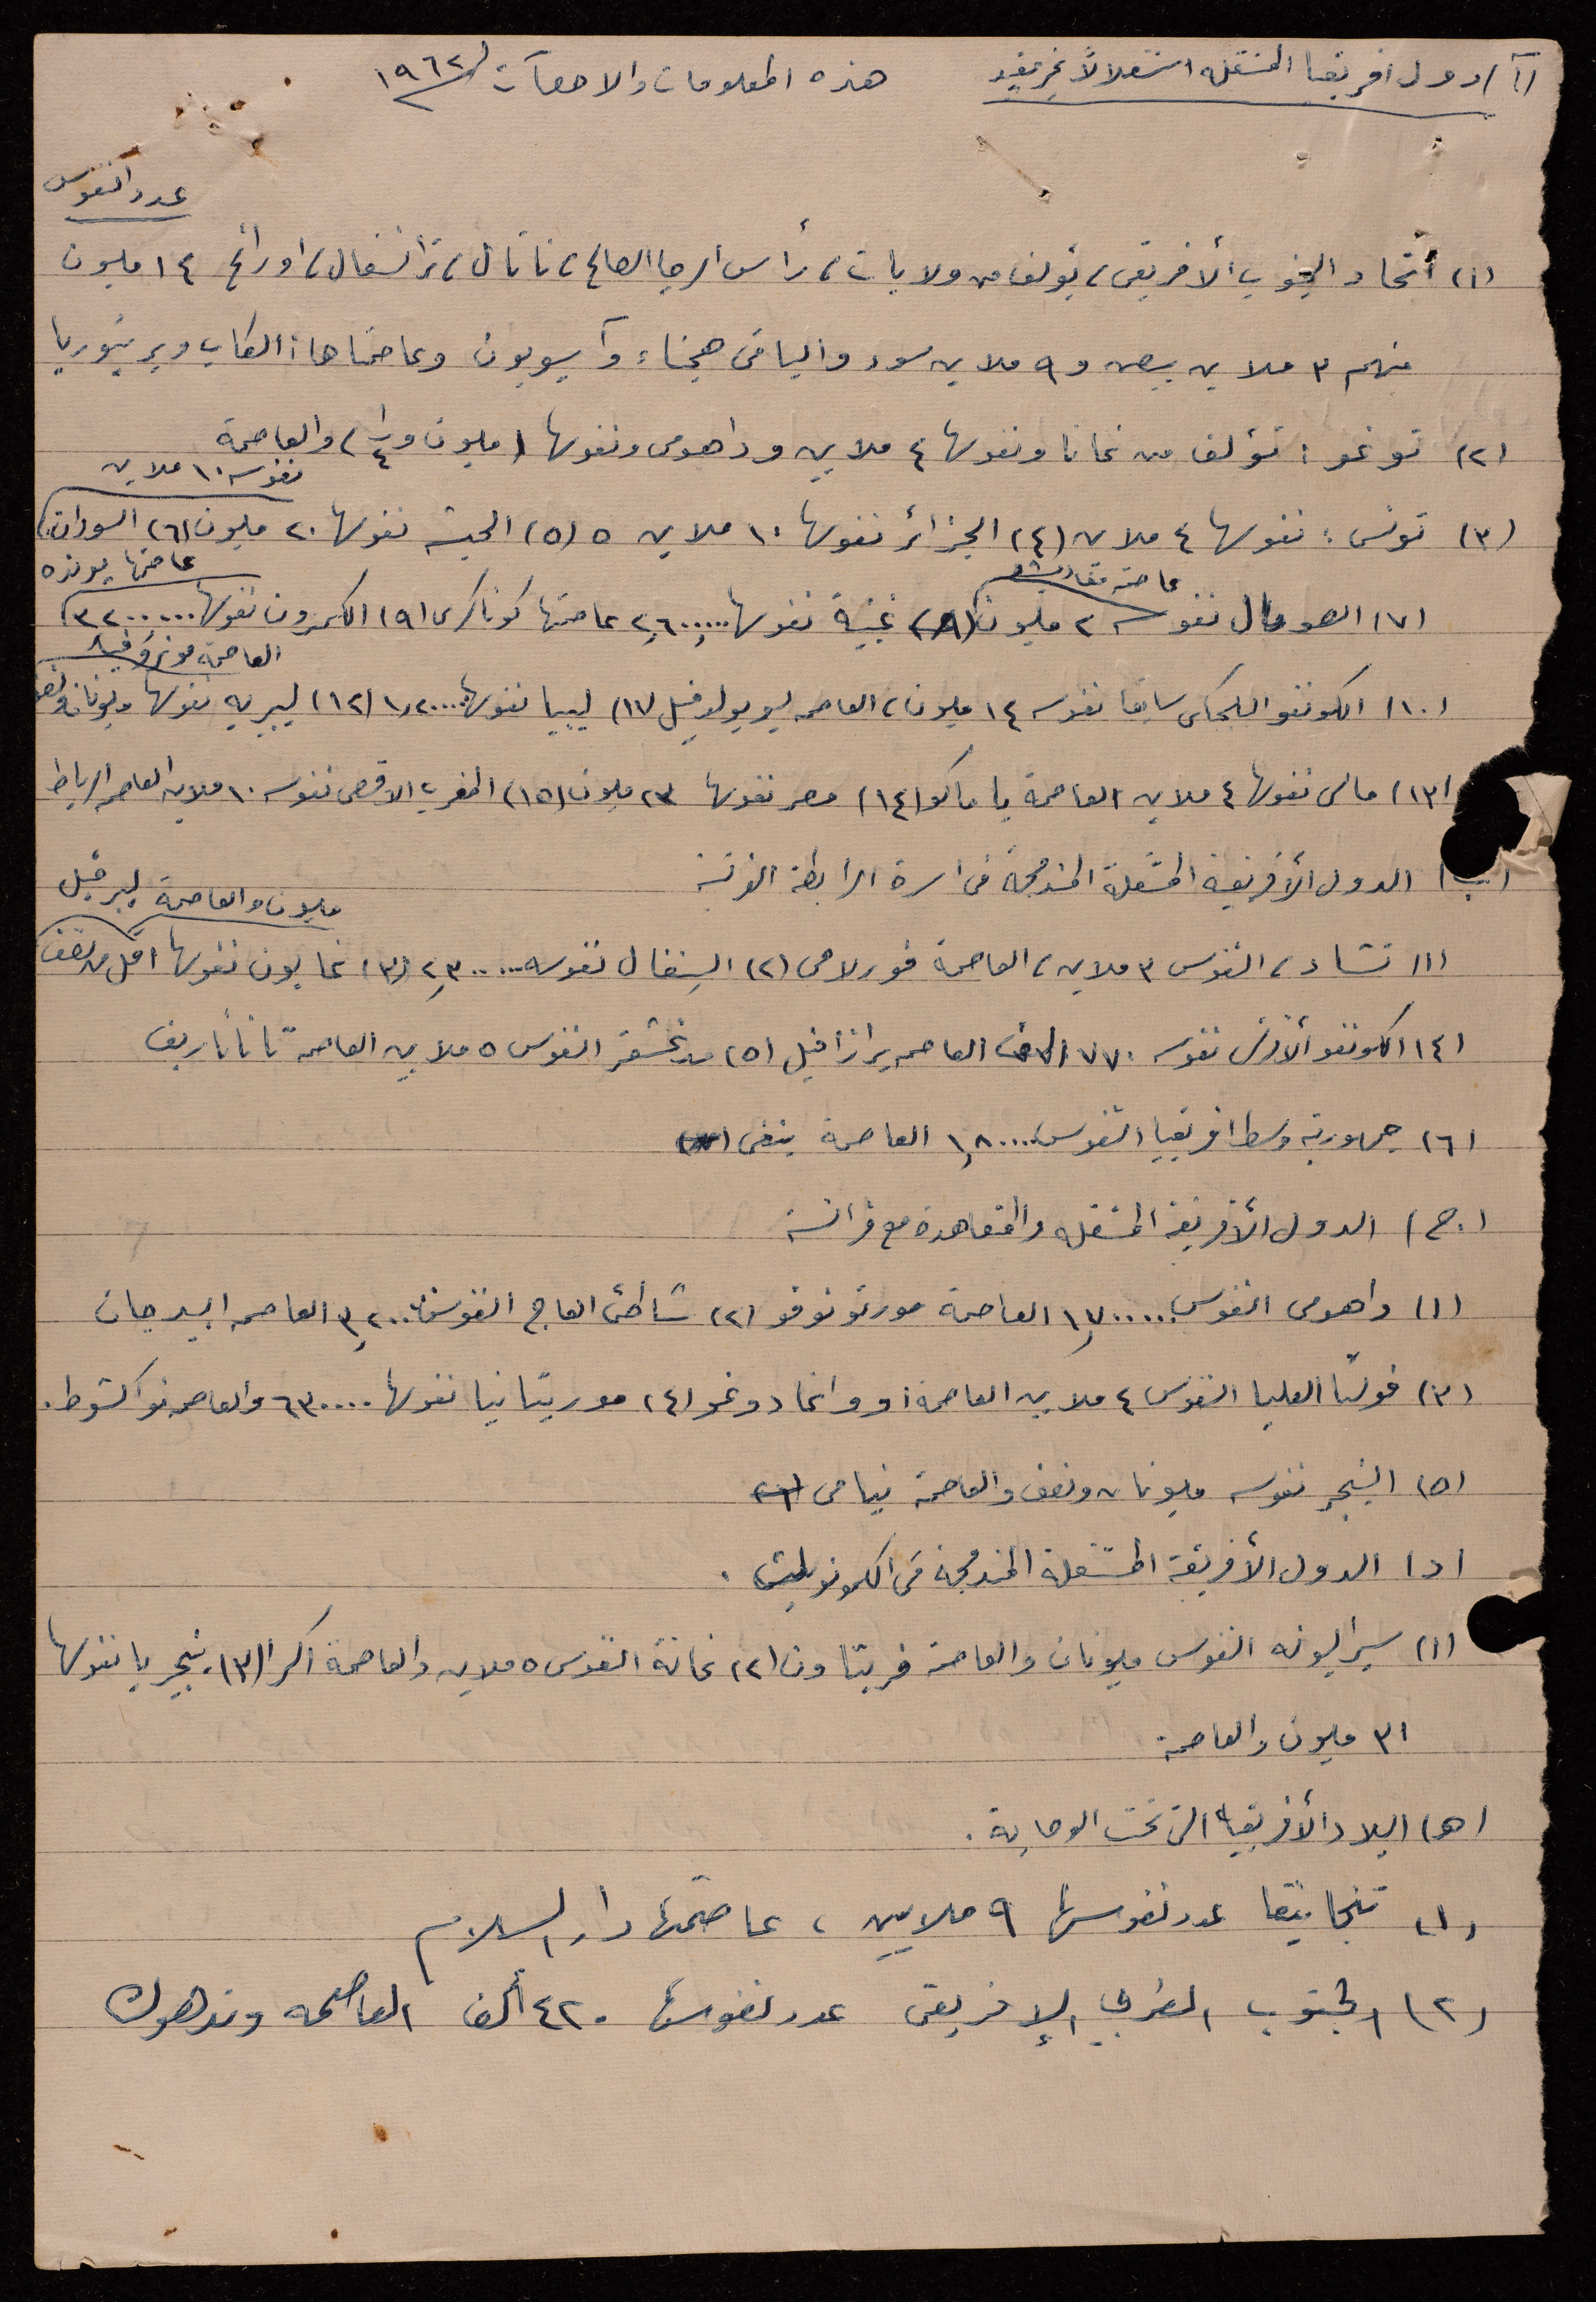 (أ) دول افريقيا المستقلة استقلالاً غير مقيد هذه المعلومات والاحصآت ١٩٦٢
عدد النفوس
(١) أتحاد الجنوب الأفريقى، يؤلف من ولايات، رأس الرجا الصالح، ناتال، ترانسفال، اورانج ١٤ مليون
منهم ٣ ملاين بيض و ٩ ملاين سود والباقى هجناء وآسيويون وعاصمتاها: الكاب وبريتوريا
(٢) توغو: تؤلف من غانا ونفوسها ٤ ملاين وداهومى ونفوسها (مليون و ١/٤) والعاصمة
نفوسه ١٠ ملاين
(٣) تونس: نفوسها ٤ ملاين (٤) الجزائر نفوسها ١٠ ملاين ٥ (٥) الحبشة نفوسها ٢٠ مليون (٦) السودان
عاصمتها يونده
عاصمته مقاديشو
(٧) الصومال نفوسه ٢ مليون (٨) غينية نفوسها ٢,٦٠٠,٠٠٠ عاصمتها كوناكرى (٩) الكمرون نفوسها ٣٢٠٠٠٠٠
العاصمة مونروفيا
(١٠) الكونغو البلجكى سابقا نفوسه ١٤ مليون، العاصمه ليوبولدفيل (١١) ليبيا نفوسها ١,٢٠٠٠٠٠ (١٢) ليبريه نفوسها مليونان ونصف
(١٣) مالى نفوسها ٤ ملاين العاصمة باماكو (١٤) مصر نفوسها ٢٣ مليون (١٥) المغرب الاقصى نفوسه ١٠ ملاين العاصمه الرباط
(ب) الدول الأفريقية المستقلة المندمجة فى اسرة الرابطة الفرنسية
مليون والعاصمة ليبرفيل
(١) تشاد، النفوس ٣ ملاين، العاصمة فورلامى (٢) السنغال نفوسه ٢,٣٠٠٠٠٠ (٣) غابون نفوسها اقل من نصف
(٤) الكونغو الأفرنسى نفوسه ٧٧٠ الف العاصمه برازافيل (٥) مدغشقر النفوس ٥ ملاين العاصمة تاناناريف
(٦) جمهورية وسط افريقيا النفوس ١,٨٠٠٠٠٠ العاصمة بنغى
(ج) الدول الأفريقية المستقله والمتعاهدة مع فرانسة
(١) داهومى النفوس ١,٧٠٠٠٠٠ العاصمة مورتو نوفو (٢) شاطئ العاج النفوس ٣,٢٠٠٠٠٠ العاصمه ابيدجان
(٣) فولتا العليا النفوس ٤ ملاين العاصمة اوواغادوغو (٤) موريتانيا نفوسها ٦٣٠٠٠٠ والعاصمه نواكشوط.
(٥) النيجر نفوسه مليونان ونصف والعاصمة نيامى (٦)
(د) الدول الأفريقية المستقلة المندمجة فى الكومونويلث.
(١) سيراليونه النفوس مليونان والعاصمة فريتاون (٢) غانة النفوس ٥ ملاين والعاصمة اكرا (٣) نيجريا نفوسها
٣١ مليون والعاصمة
(هـ) البلاد الأفريقية التى تحت الوصاية.
(١) تنجانيقا عدد نفوسها ٩ ملايين، عاصمتها دار السلام
(٢) الجنوب الغربي الإفريقى عدد نفوسها ٤٢٠ ألف العاصمه وندهوك